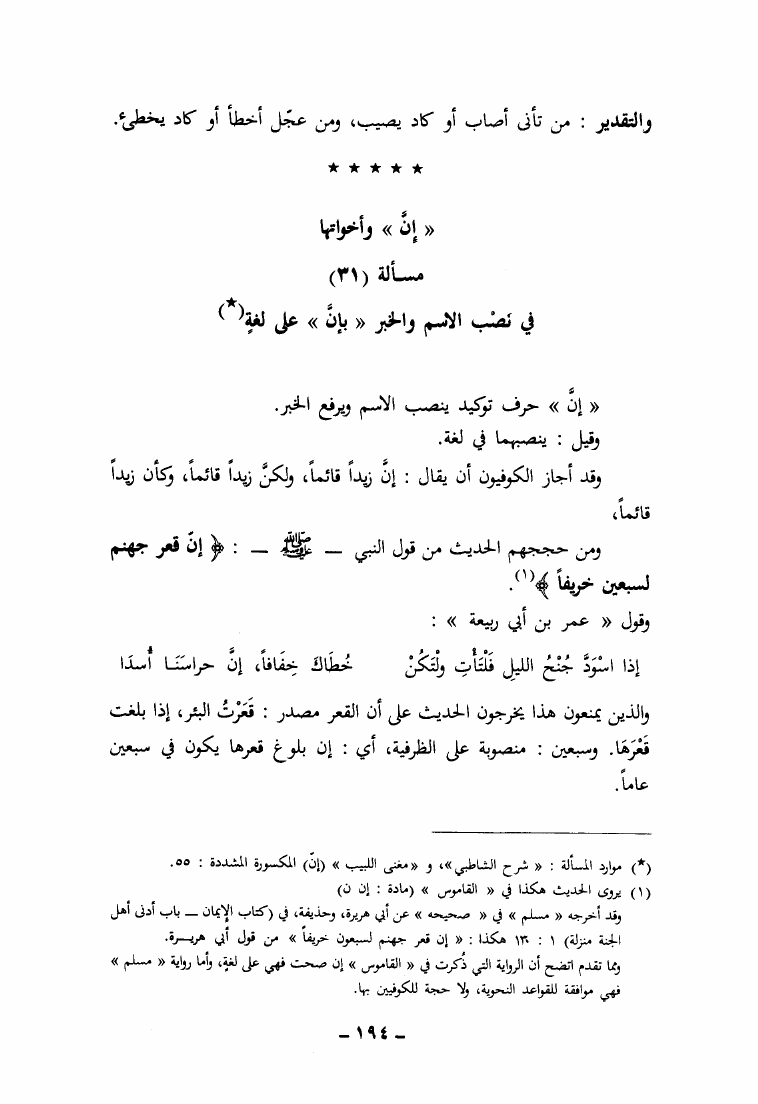 والتقدير : من تأنى أصاب أو كاد يصيب، ومن عجّل أخطأ أو كاد يخطئ.
★ ★ ★ ★ ★
« إِنَّ » وأخواتها
مسألة (٣١)
في نَصْب الاسم والخبر « بإنَّ » على لغةٍ(★)
« إنَّ » حرف توكيد ينصب الاسم ويرفع الخبر.
وقيل : ينصبهما في لغة.
وقد أجاز الكوفيون أن يقال : إنَّ زيداً قائماً، ولكنَّ زيداً قائماً، وكأن زيداً
قائماً،
ومن حججهم الحديث من قول النبي — ﷺ — : ﴿ إنّ قعر جهنم
لسبعين خريفاً ﴾(١).
وقول « عمر بن أبي ربيعة » :
إذا اسْوَدَّ جُنْحُ الليلِ فَلْتَأْتِ ولْتَكُنْ خُطَاكَ خِفَافاً، إنَّ حراسَنَا أُسدَا
والذين يمنعون هذا يخرجون الحديث على أن القعر مصدر : قَعَرْتُ البئر، إذا بلغت
قَعْرَهَا. وسبعين : منصوبة على الظرفية، أي : إن بلوغ قعرها يكون في سبعين
عاماً.
(★) موارد المسألة : « شرح الشاطبي»، و «مغنى اللبيب » (إنّ) المكسورة المشددة : ٥٥.
(١) يروى الحديث هكذا في « القاموس » (مادة : إن ن)
وقد أخرجه « مسلم » في « صحيحه » عن أبي هريرة، وحذيفة، في (كتاب الإيمان — باب أدنى أهل
الجنة منزلة) ١ : ١٣٠ هكذا : « إن قعر جهنم لسبعون خريفاً » من قول أبي هريرة.
ومما تقدم اتضح أن الرواية التي ذُكرت في « القاموس » إن صحت فهي على لغةٍ، وأما رواية « مسلم »
فهي موافقة للقواعد النحوية، ولا حجة للكوفيين بها.
– ١٩٤ –